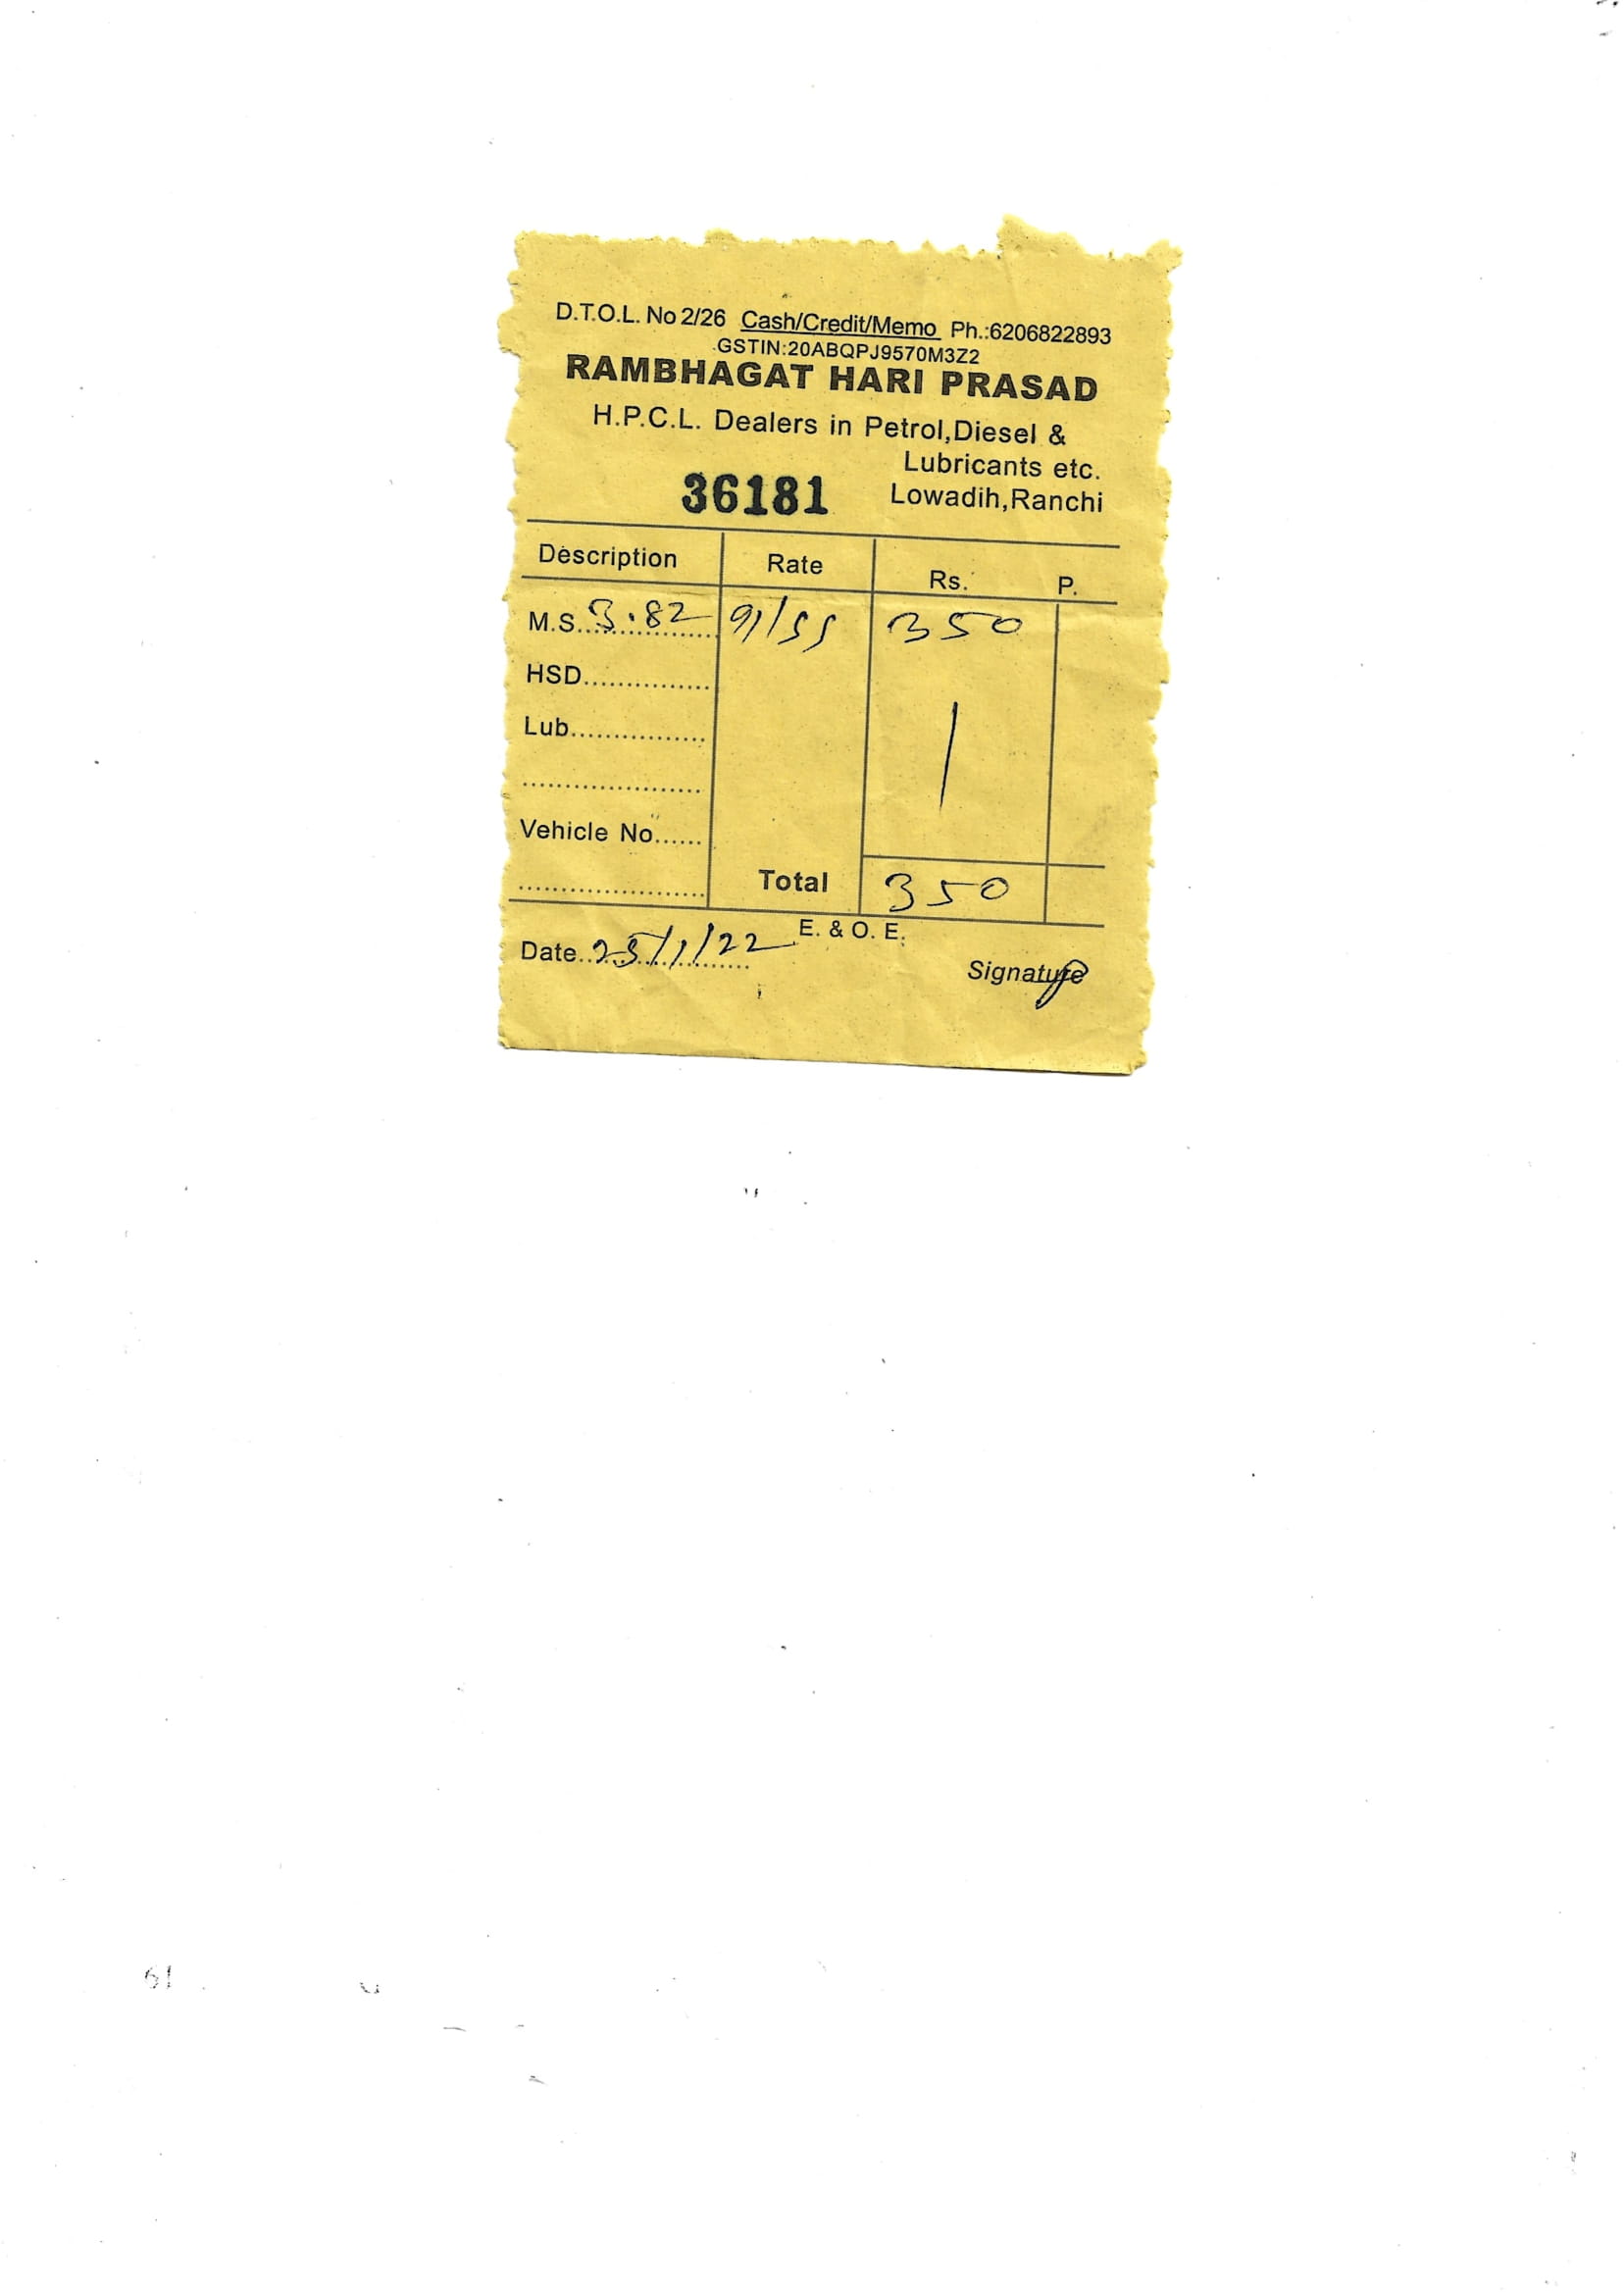 D.T.O.L. No 2/26 Cash/Credit/Memo Ph.:6206822893
GSTIN:20ABQPJ9570M3Z2
RAMBHAGAT HARI PRASAD
H.P.C.L. Dealers in Petrol,Diesel &
Lubricants etc.
36181 Lowadih,Ranchi
Description Rate Rs. P.
M.S. 3.82 91/55 350
HSD...............
Lub................
Vehicle No......
Total 350
E. & O. E.
Date 25/1/22
Signature